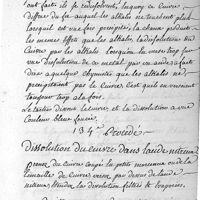 ont fait, ils se redissolvent, lorsqu'on
differe du fer auquel les alkalis ne touchent plus
lorsqu'il est une fois precipité, la chaux produit
les memes effets que les alkalis, la dissolution du
Cuivre par les alkalis lorsqu'on la verse trop sur
une dissolution de ce metal par un acide a fait
dire a quelques chymistes que les alkalis ne
precipitoient pas le Cuivre c'est qu'ils en versoient
toujours trop a la fois.
Le tartre dissout le cuivre, et la dissolution a une
Couleur bleue foncée.
134e Procedé
Dissolution du cuivre dans l'acide nitreux
Prenez, du Cuivre coupé en petits morceaux ou de la
limaille de Cuivre versez par dessus de l'acide
nitreux, la dissolution filtrée &